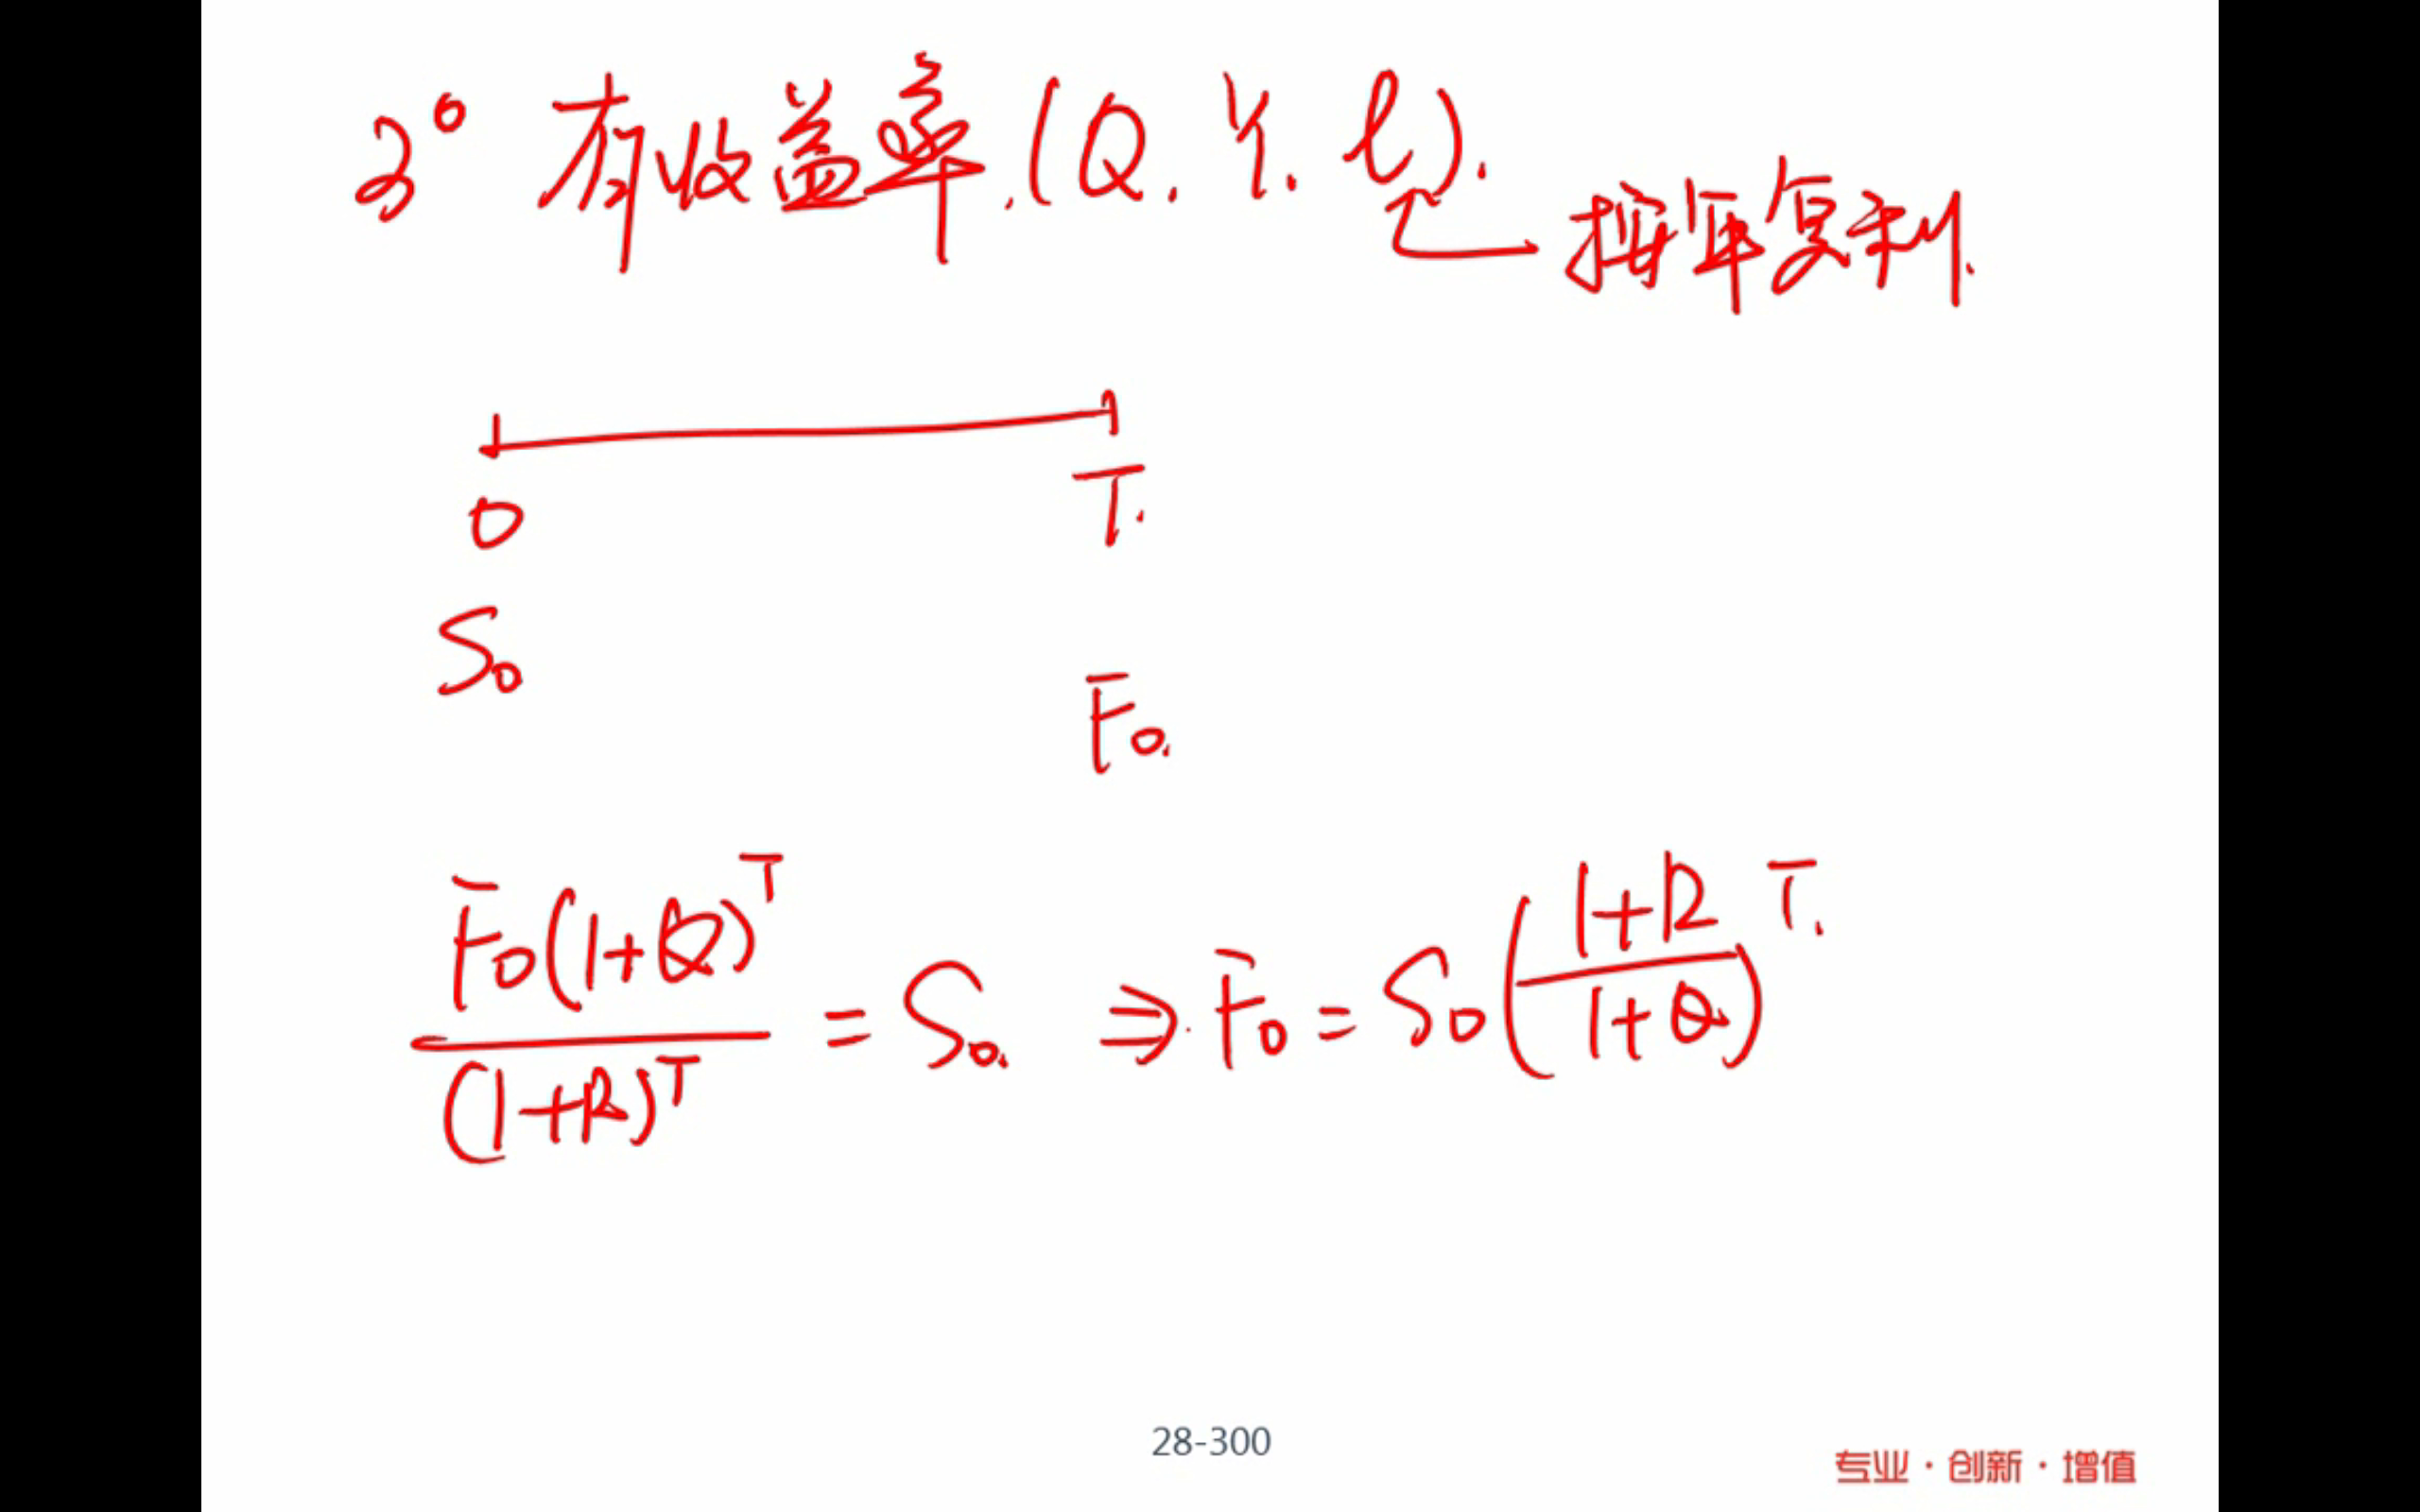 2° 有收益率.(Q. Y. l). 按年复利.
0 T.
S₀
F₀.
F₀(1+Q)^T / (1+R)^T = S₀. ⇒. F₀ = S₀((1+R)/(1+Q))^T.
28-300
专业·创新·增值